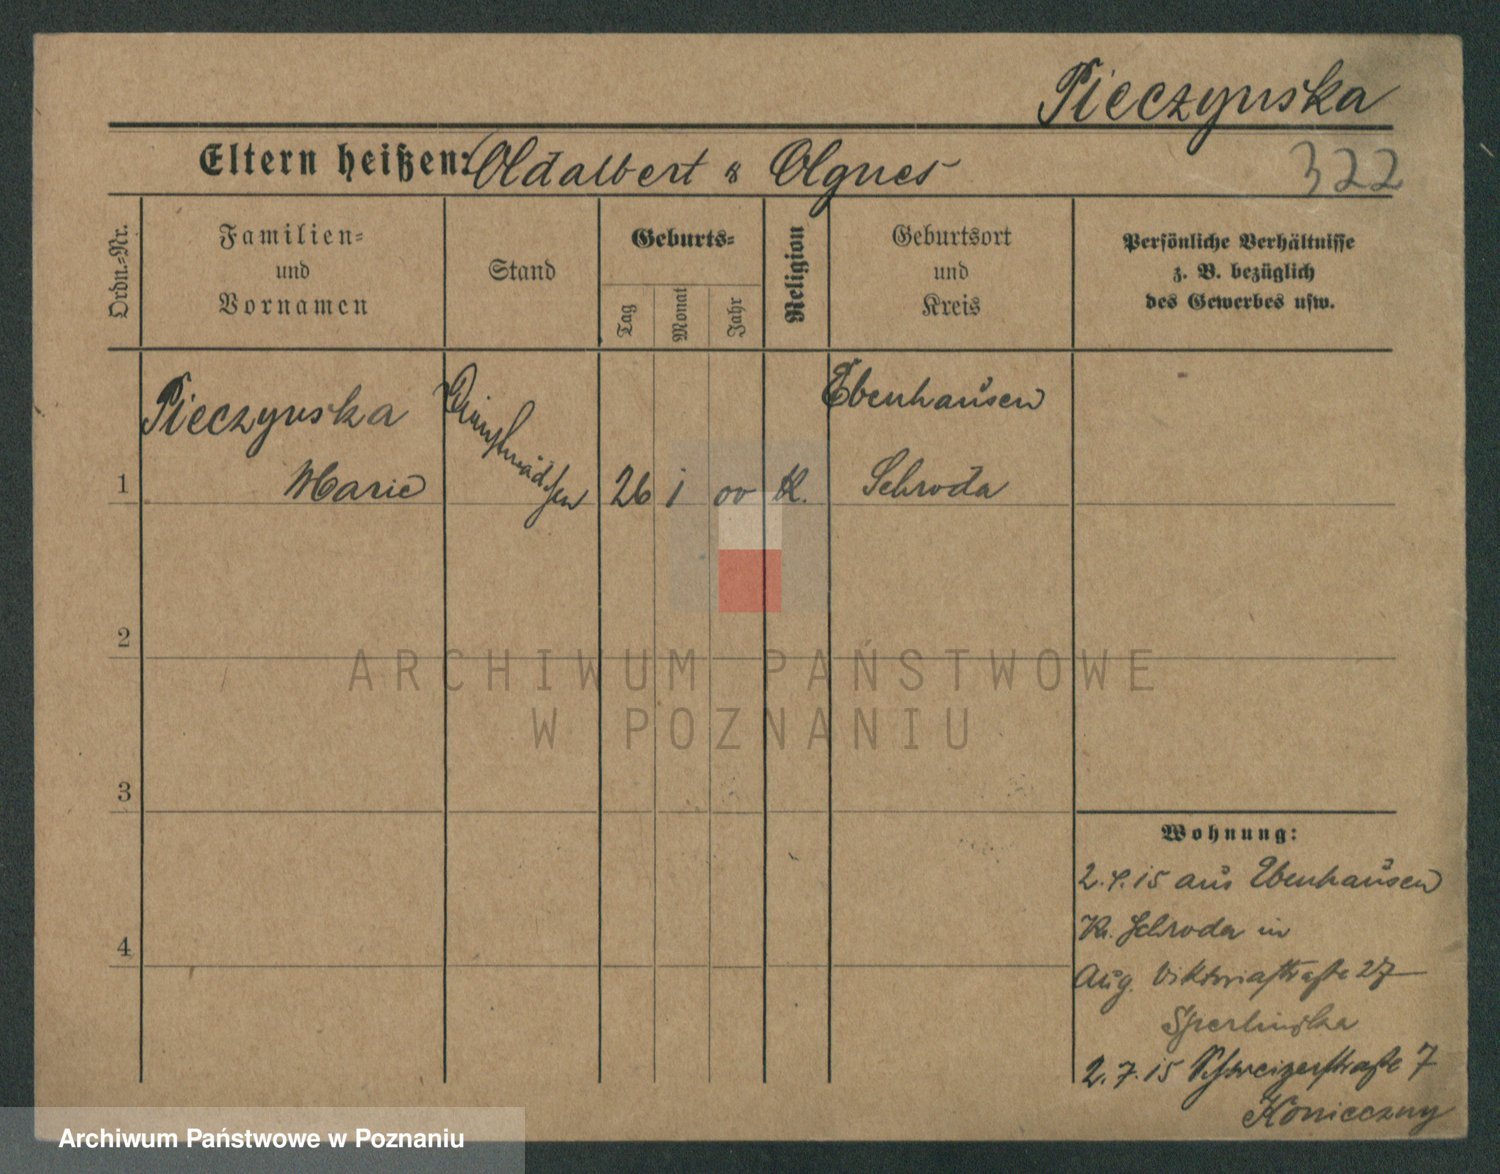 Pieczynska
Eltern heißen: Adalbert & Agnes
322
Ordn.-Nr.
Familien-
und
Vornamen
Stand
Geburts-
Tag
Monat
Jahr
Religion
Geburtsort
und
Kreis
Persönliche Verhältnisse
z. B. bezüglich
des Gewerbes usw.
1
Pieczynska
Marie
Dienstmädchen
26
1
00
K.
Ebenhausen
Schroda
2
ARCHIWUM PAŃSTWOWE
W POZNANIU
3
4
Wohnung:
2.4.15 aus Ebenhausen
Kr. Schroda in
Aug. Viktoriastraße 27
Sperlinska
2.7.15 Schweizerstraße 7
Konieczny
Archiwum Państwowe w Poznaniu